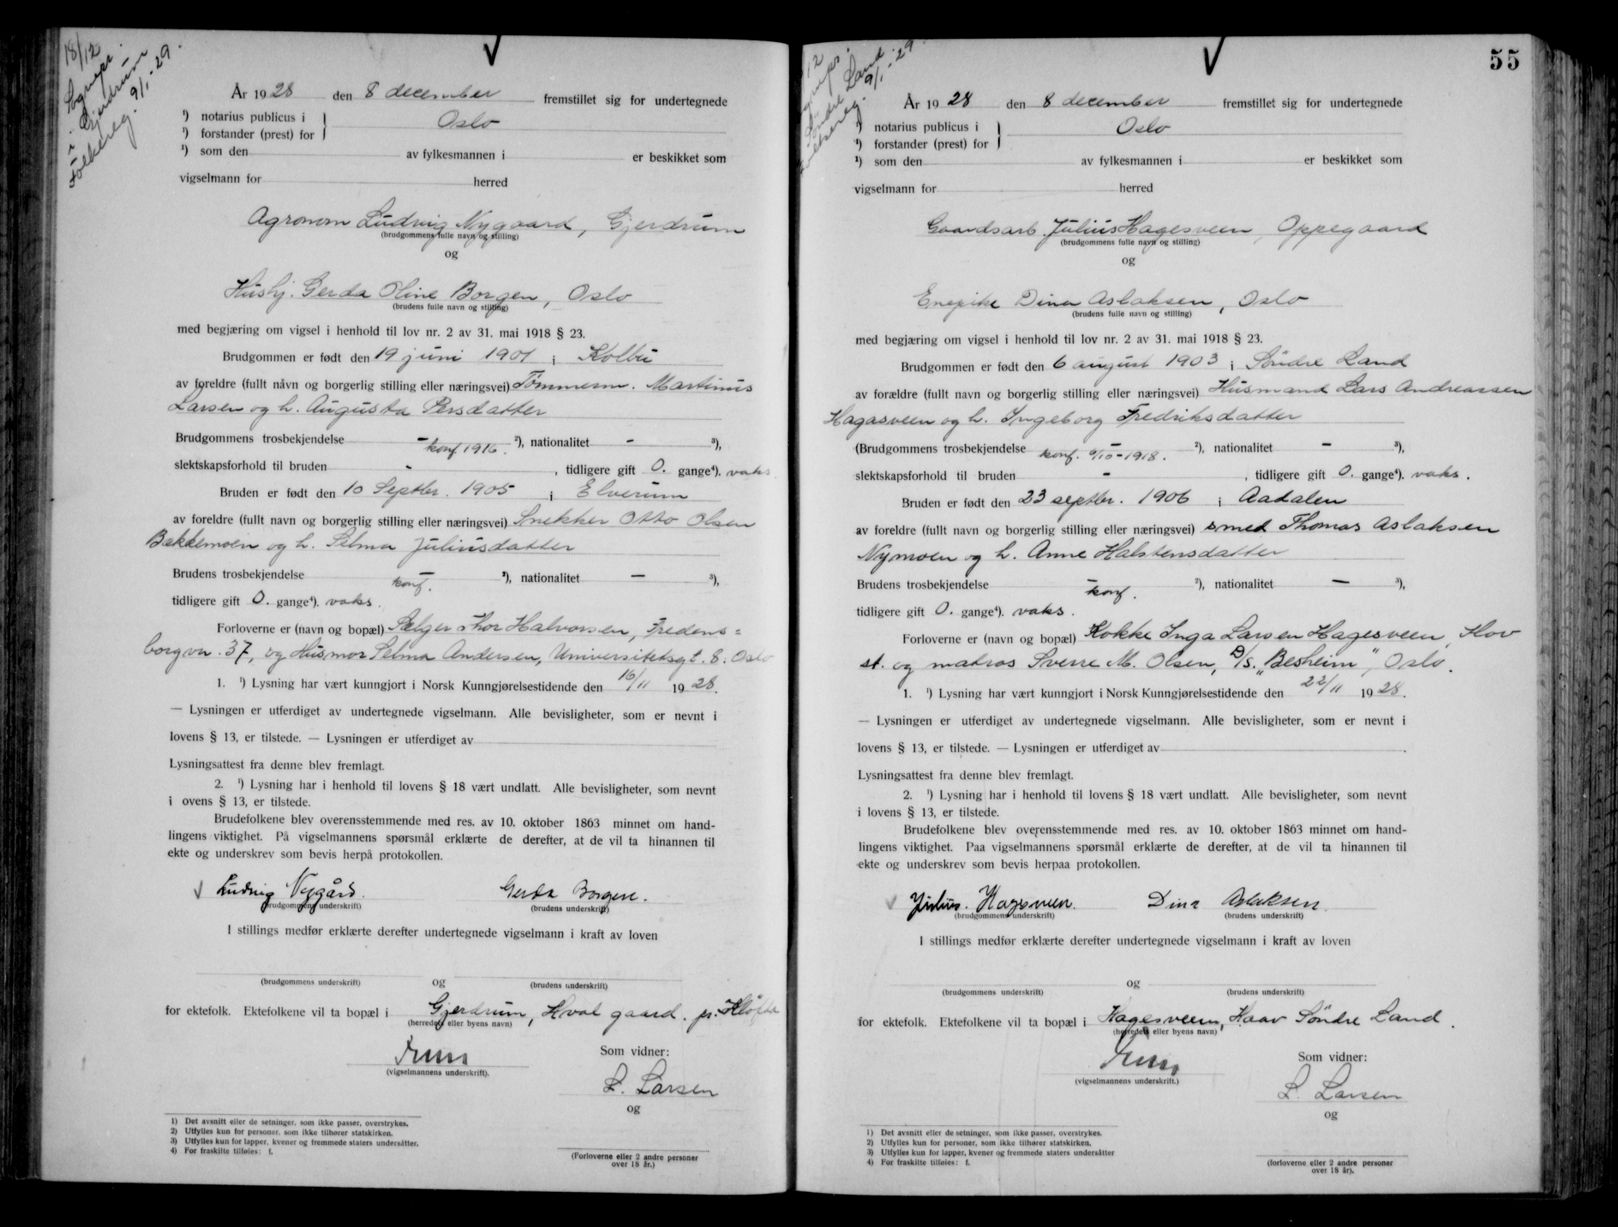 18/12
Sogneps.
i Gjerdrum
Folkereg. 9/1-29.
År 1928 den 8 december fremstillet sig for undertegnede
¹) notarius publicus i
¹) forstander (prest) for } Oslo
¹) som den av fylkesmannen i er beskikket som
vigselmann for herred
Agronom Ludvig Nygaard, Gjerdrum
(brudgommens fulle navn og stilling)
og
Hushj. Gerda Oline Borgen, Oslo
(brudens fulle navn og stilling)
med begjæring om vigsel i henhold til lov nr. 2 av 31. mai 1918 § 23.
Brudgommen er født den 19 juni 1901 i Kolbu
av foreldre (fullt nåvn og borgerlig stilling eller næringsvei) Tømmerm. Martinus
Larsen og h. Augusta Persdatter
Brudgommens trosbekjendelse - konf 1916. ²), nationalitet - ³),
slektskapsforhold til bruden - , tidligere gift 0. gange⁴). vaks
Bruden er født den 10 Septbr. 1905 i Elverum
av foreldre (fullt navn og borgerlig stilling eller næringsvei) Snekker Otto Olsen
Bakkemoen og h. Selma Juliusdatter
Brudens trosbekjendelse - konf. ²), nationalitet - ³),
tidligere gift 0. gange⁴). vaks.
Forloverne er (navn og bopæl) Sælger Thor Halvorsen, Fredens=
borgvn. 37, og Husmor Selma Andersen, Universitetsgt. 8. Oslo
1. ¹) Lysning har vært kunngjort i Norsk Kunngjørelsestidende den 16/11 1928.
— Lysningen er utferdiget av undertegnede vigselmann. Alle bevisligheter, som er nevnt i
lovens § 13, er tilstede. — Lysningen er utferdiget av
Lysningsattest fra denne blev fremlagt.
2. ¹) Lysning har i henhold til lovens § 18 vært undlatt. Alle bevisligheter, som nevnt
i ovens § 13, er tilstede.
Brudefolkene blev overensstemmende med res. av 10. oktober 1863 minnet om hand-
lingens viktighet. På vigselmannens spørsmål erklærte de derefter, at de vil ta hinannen til
ekte og underskrev som bevis herpå protokollen.
Ludvig Nygård. Gerda Borgen.
(brudgommens underskrift) (brudens underskrift)
I stillings medfør erklærte derefter undertegnede vigselmann i kraft av loven
og
(brudgommens underskrift) (brudens underskrift)
for ektefolk. Ektefolkene vil ta bopæl i Gjerdrum, Hval gaard. pr. Kløfta
(herredets eller byens navn)
Som vidner:
(vigselmannens underskrift).
L. Larsen
og
1) Det avsnitt eller de setninger, som ikke passer, overstrykes.
2) Utfylles kun for personer, som ikke tilhører statskirken.
3) Utfylles kun for lapper, kvener og fremmede staters undersåtter.
4) For fraskilte tilføies: f.
(Forloverne eller 2 andre personer
over 18 år.)
55
Søndre Land
9/1-29
År 1928 den 8 december fremstillet sig for undertegnede
¹) notarius publicus i
¹) forstander (prest) for } Oslo
¹) som den av fylkesmannen i er beskikket som
vigselmann for herred
Gaardsarb. Julius Hagesveen, Oppegaard
(brudgommens fulle navn og stilling)
og
Enepike Dina Aslaksen, Oslo
(brudens fulle navn og stilling)
med begjæring om vigsel i henhold til lov nr. 2 av 31. mai 1918 § 23.
Brudgommen er født den 6 august 1903 i Søndre Land
av forældre (fullt navn og borgerlig stilling eller næringsvei) Husmand Lars Andreassen
Hagasveen og h. Ingeborg Fredriksdatter
(Brudgommens trosbekjendelse konf. 6/10-1918. ²), nationalitet - ³),
slektskapsforhold til bruden - , tidligere gift 0. gange⁴). vaks.
Bruden er født den 23 septbr. 1906 i Aadalen
av foreldre (fullt navn og borgerlig stilling eller næringsvei) smed Thomas Aslaksen
Nymoen og h. Anne Halstensdatter
Brudens trosbekjendelse - konf. ²), nationalitet - ³),
tidligere gift 0. gange⁴). vaks.
Forloverne er (navn og bopæl) Kokke Inga Larsen Hagesveen, Hov
st. og matros Sverre M. Olsen, D/S. "Besheim", Oslo.
1. ¹) Lysning har vært kunngjort i Norsk Kunngjørelsestidende den 22/11 1928.
— Lysningen er utferdiget av undertegnede vigselmann. Alle bevisligheter, som er nevnt i
lovens § 13, er tilstede. — Lysningen er utferdiget av .
Lysningsattest fra denne blev fremlagt.
2. ¹) Lysning har i henhold til lovens § 18 vært undlatt. Alle bevisligheter, som nevnt
i lovens § 13, er tilstede.
Brudefolkene blev overensstemmende med res. av 10. oktober 1863 minnet om hand-
lingens viktighet. Paa vigselmannens spørsmål erklærte de derefter, at de vil ta hinannen til
ekte og underskrev som bevis herpaa protokollen.
Julius. Hagesveen. Dina Aslaksen.
(brudgommens underskrift) (brudens underskrift)
I stillings medfør erklærte derefter undertegnede vigselmann i kraft av loven
og
(brudgommens underskrift) (brudens underskrift)
for ektefolk. Ektefolkene vil ta bopæl i Hagesveen, Haav Søndre Land.
(herredets eller byens navn)
Som vidner:
(vigselmannens underskrift.)
L. Larsen
og
1) Det avsnitt eller de setninger, som ikke passer, overstrykes.
2) Utfylles kun for personer, som ikke tilhører statskirken.
3) Utfylles kun for lapper, kvener og fremmede staters undersåtter
4) For fraskilte tilføies: f.
(forloverne eller 2 andre personer
over 18 år).